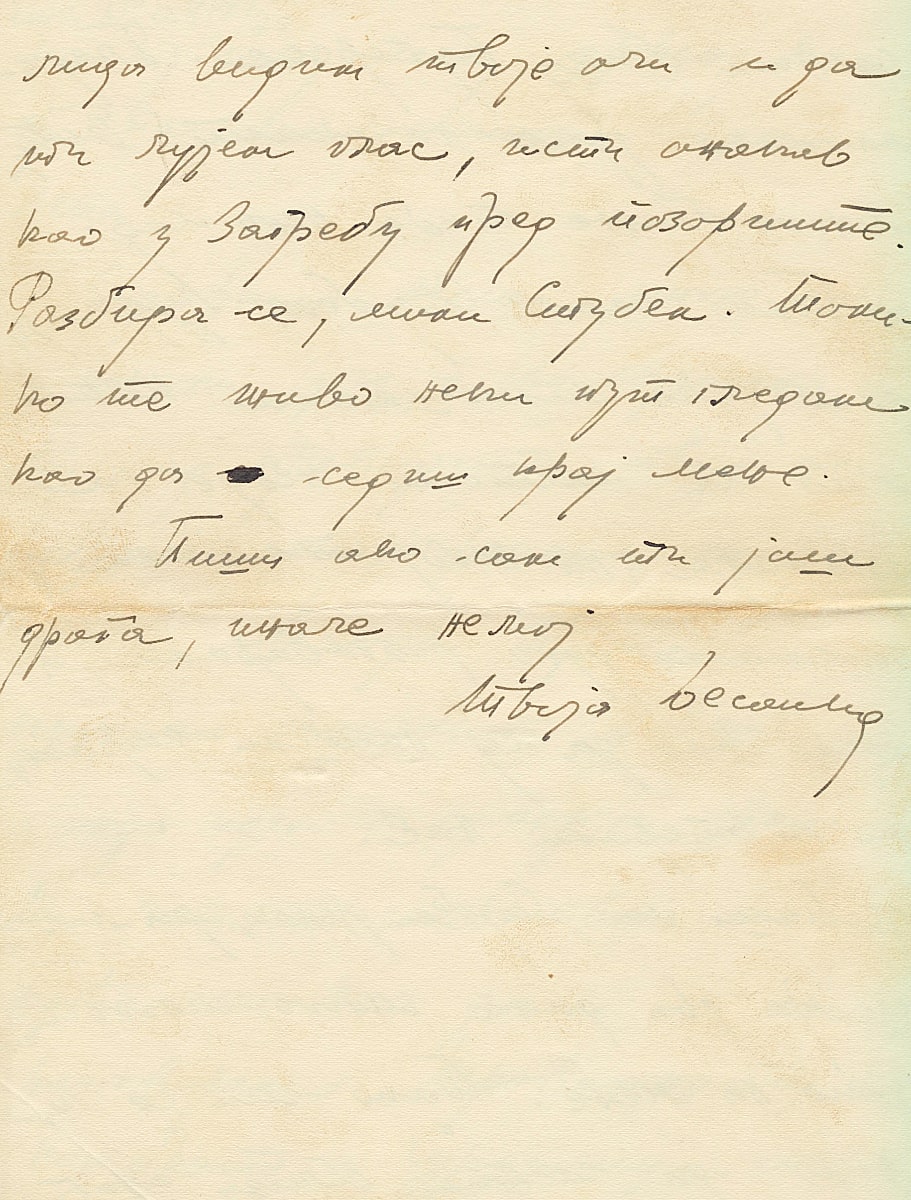 лица видим твоје очи и да
ти чујем глас, исти онакав
као у Загребу пред позориште.
Разбира се, мили Стубек. Толи-
ко те живо неки пут гледам
као да седиш крај мене.
Пиши ако сам ти још
драга, иначе немој
Твоја Десанка